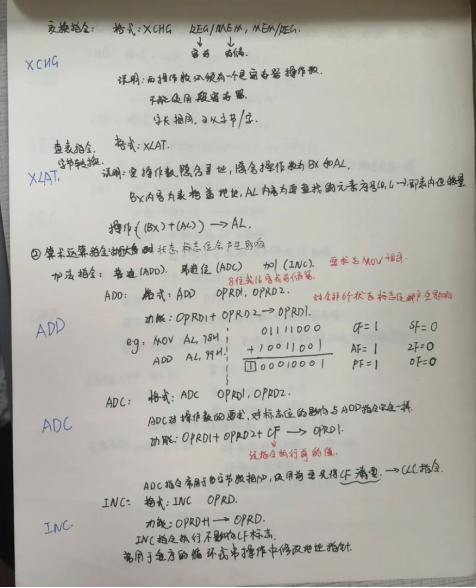 交换指令: 格式: XCHG REG/MEM, MEM/REG.
寄存 存储
XCHG
说明: 两操作数必须有一个是寄存器操作数.
不能使用段寄存器.
字长相同, 可以字节/字.
查表指令. 格式: XLAT.
字节转换.
XLAT. 说明: 空操作数隐含寻址, 隐含操作数为BX和AL.
BX内容为表格首地址, AL内容为要查找的元素序号
操作: ((BX)+(AL)) → AL.
② 算术运算指令 状态标志位会产生影响
加法指令: 普通 (ADD). 带进位 (ADC) 加1 (INC). 要求与MOV相同.
8位或16
ADD: 格式: ADD OPRD1, OPRD2. 对全部6个状态标志位都产生影响
功能: OPRD1 + OPRD2 → OPRD1.
ADD
eg: MOV AL, 78H 01111000 CF=1 SF=0
ADD AL, 99H. +10011001 AF=1 ZF=0
1 00010001 PF=1 OF=0
ADC: 格式: ADC OPRD1, OPRD2.
ADC
ADC对操作数的要求, 对标志位的影响与ADD指令完全一样.
功能: OPRD1 + OPRD2 + CF → OPRD1.
该指令执行前的值.
ADC指令常用于多字节数相加, 使用前要先将CF清零. → CLC指令.
INC: 格式: INC OPRD.
INC.
功能: OPRD+1 → OPRD.
INC指令执行不影响CF标志.
常用于程序的循环或串操作中修改地址指针.